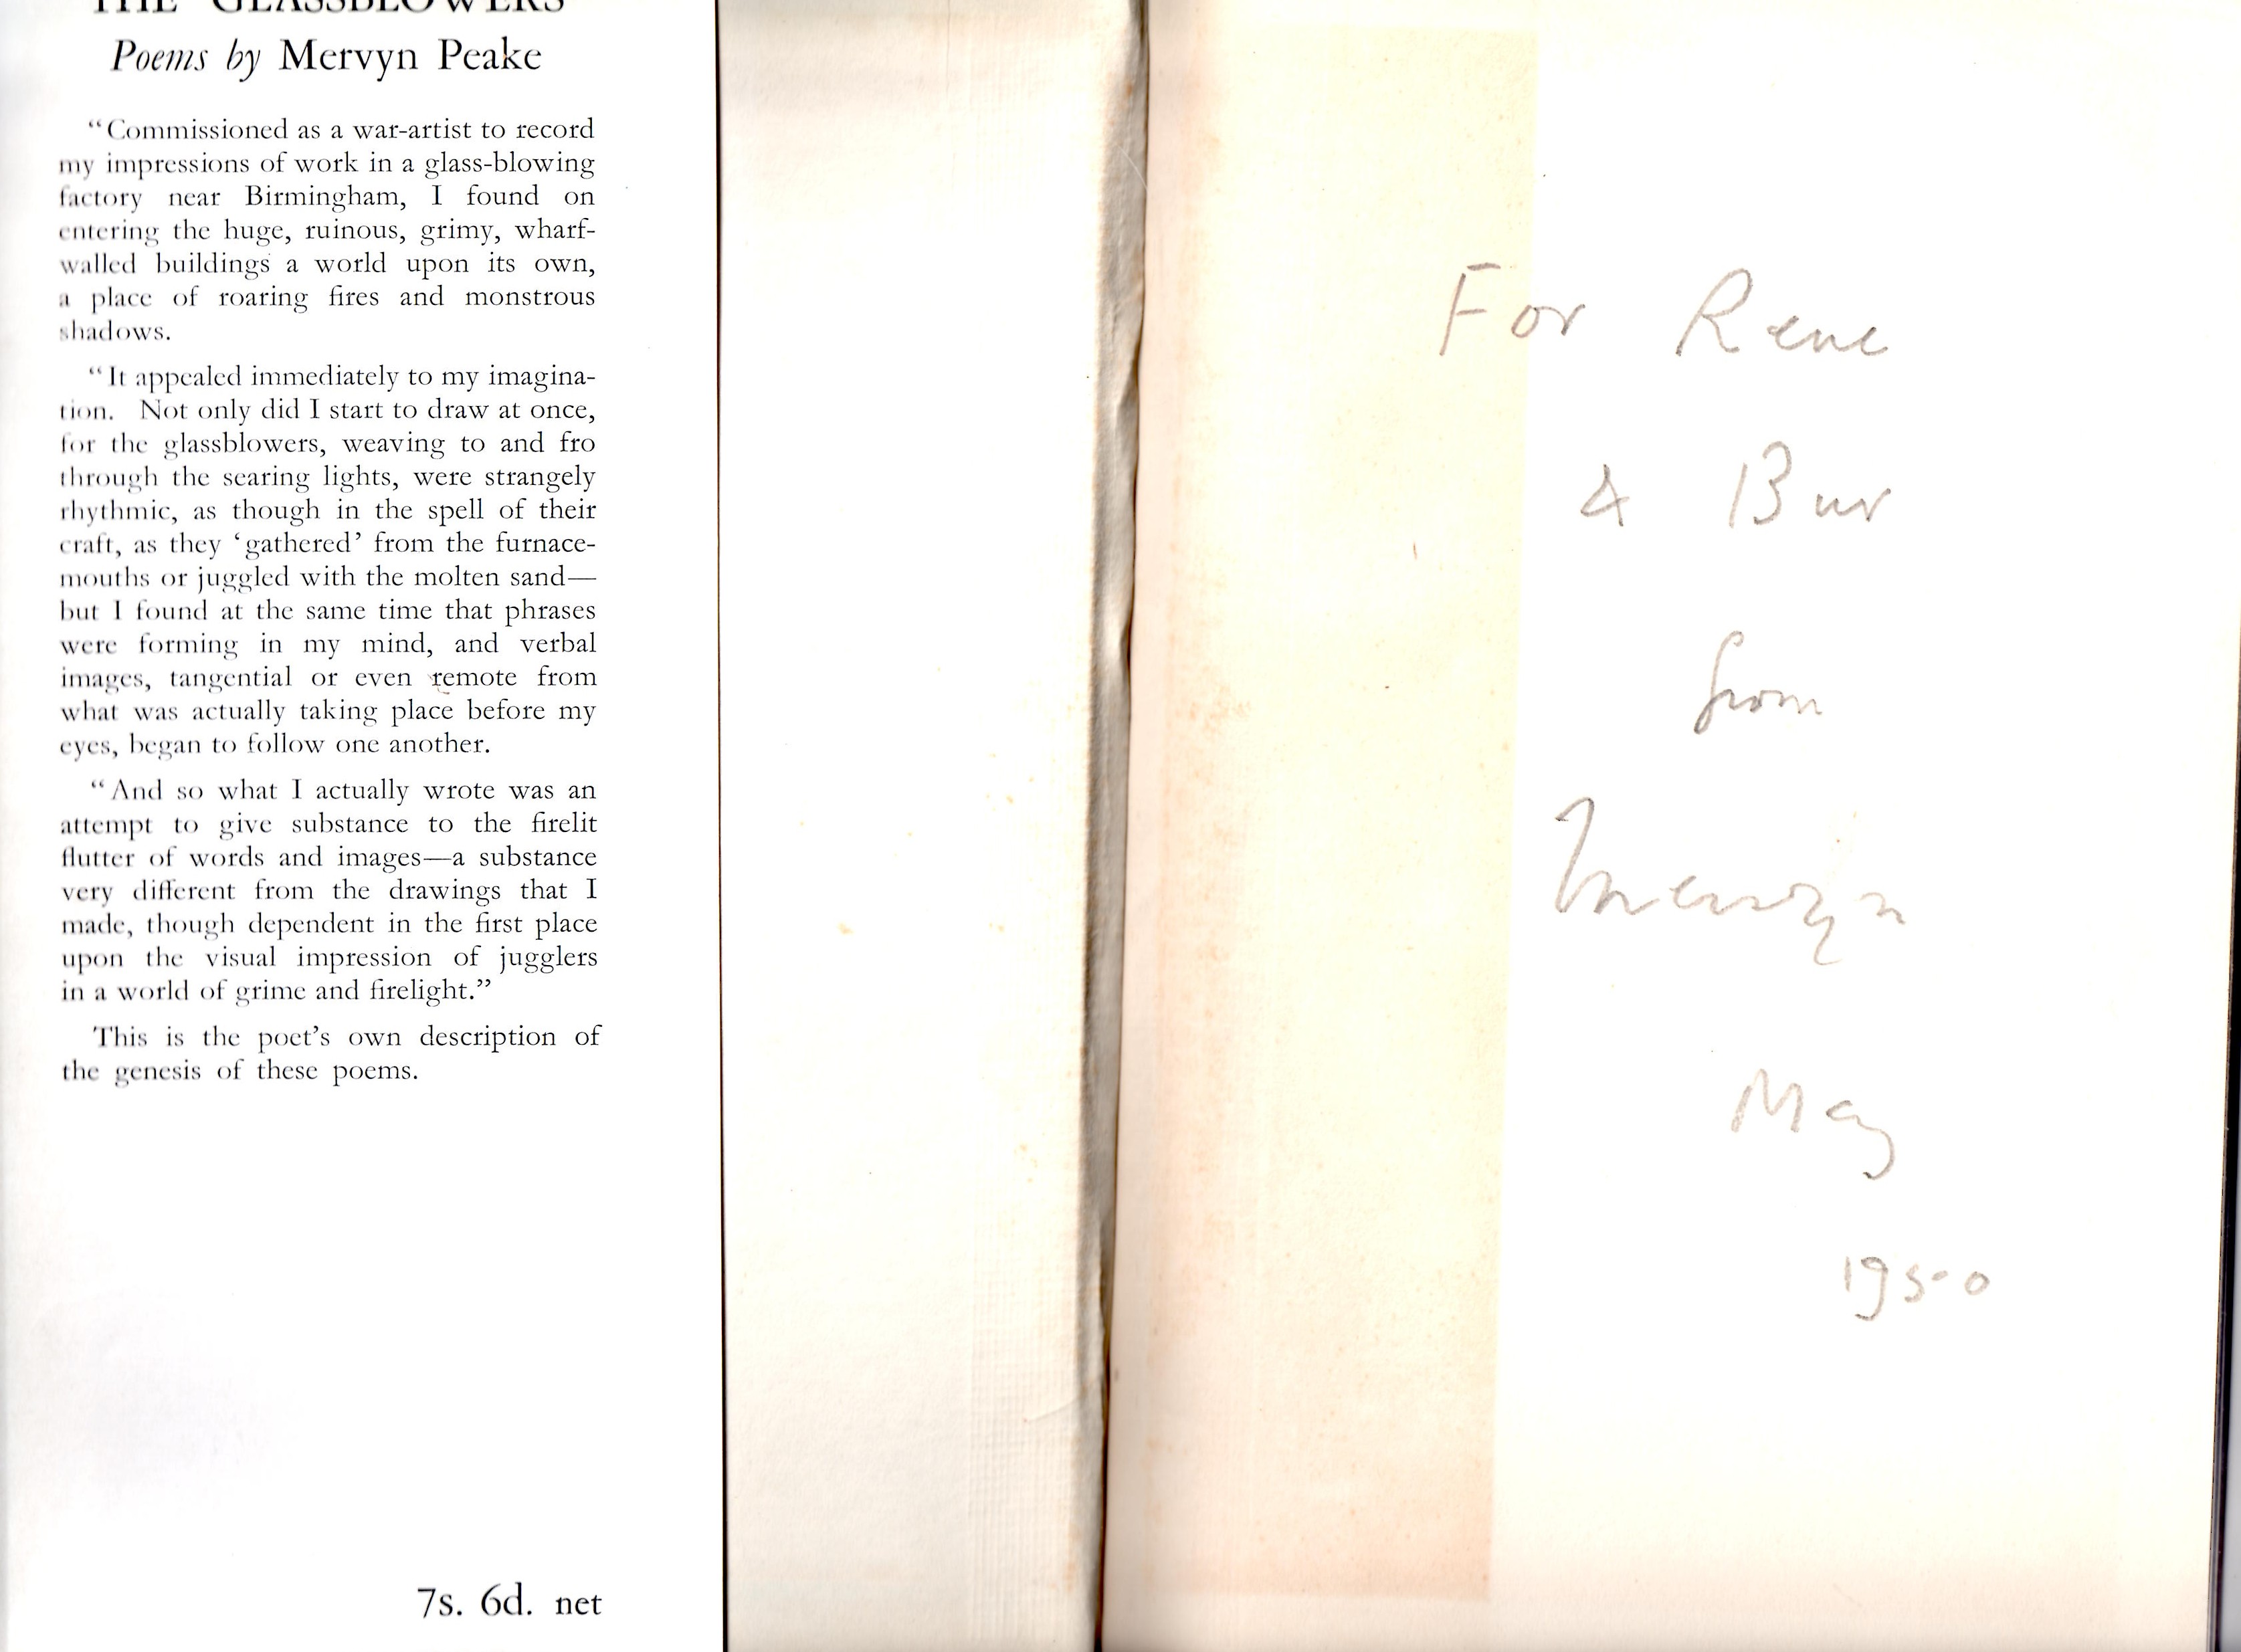 THE GLASSBLOWERS
Poems by Mervyn Peake
“Commissioned as a war-artist to record
my impressions of work in a glass-blowing
factory near Birmingham, I found on
entering the huge, ruinous, grimy, wharf-
walled buildings a world upon its own,
a place of roaring fires and monstrous
shadows.
“It appealed immediately to my imagina-
tion. Not only did I start to draw at once,
for the glassblowers, weaving to and fro
through the searing lights, were strangely
rhythmic, as though in the spell of their
craft, as they ‘gathered’ from the furnace-
mouths or juggled with the molten sand—
but I found at the same time that phrases
were forming in my mind, and verbal
images, tangential or even remote from
what was actually taking place before my
eyes, began to follow one another.
“And so what I actually wrote was an
attempt to give substance to the firelit
flutter of words and images—a substance
very different from the drawings that I
made, though dependent in the first place
upon the visual impression of jugglers
in a world of grime and firelight.”
This is the poet’s own description of
the genesis of these poems.
7s. 6d. net
For Rene
& Bur
from
Mervyn
May
1950